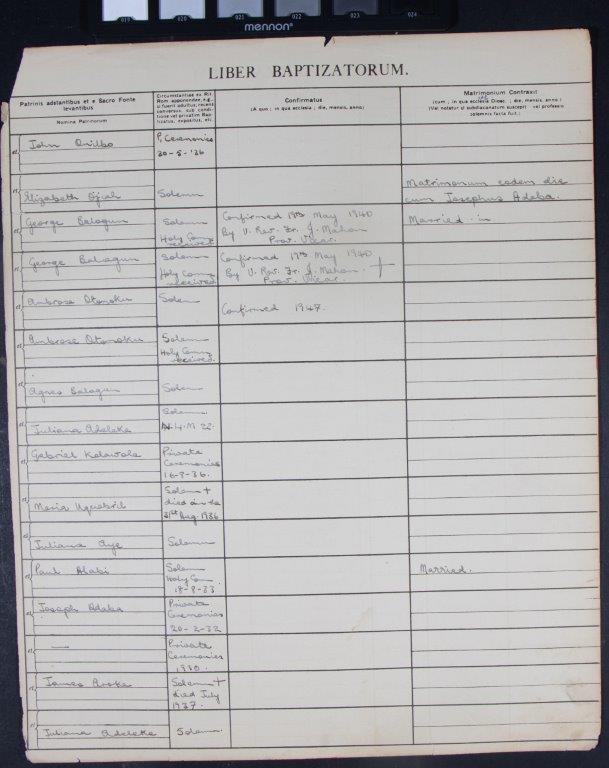 019 020 021 022 023 024
mennon
LIBER BAPTIZATORUM.
Patrinis adstantibus et e Sacro Fonte
levantibus
Nomina Patrinorum
Circumstantiae ex Rit.
Rom. apponendae, e.g.,
si fuerit adultus; recens
conversus, sub condi-
tione vel privatim Bap-
tizatus, expositus, etc.
Confirmatus
(A quo ; in qua ecclesia ; die, mensis, anno)
Matrimonium Contraxit
(cum ; in qua ecclesia Dioec. ; die, mensis, anno)
(Vel notetur si subdiaconatum suscepit vel professio
solemnis facta fuit.)
John
P. Ceremonies
30-5-'36
Elizabeth Ojiah
Solemn
Matrimonum eodem die
cum Josephus Adeba.
George Balogun
Solemn
Holy Com
received
Confirmed 19th May 1940
By V. Rev. Fr. J. Mahon
Prov. Vicar.
Married in
George Balogun
Solemn
Holy Comm
received
Confirmed 19th May 1940
By V. Rev. Fr. J. Mahon.
Prov. Vicar.
Ambrose Otonoku
Solem
Confirmed 1947.
Ambrose Otonoku
Solemn
Holy Comm
received.
Agnes Balogun
Solem
Juliana Adeleke
Solemn
N.4.M 22.
Gabriel Kolawole
Private
Ceremonies
16-9-36.
Maria
Solem +
died on the
31st Aug. 1936
Juliana Aye
Solemn
Paul Alabi
Solem
Holy Com
18-9-33
Married.
Joseph Adeba
Private
Ceremonies
20-2-32
—
Private
Ceremonies
1930.
James Aroke
Solemn +
died July
1937.
Juliana Adeleke
Solemn